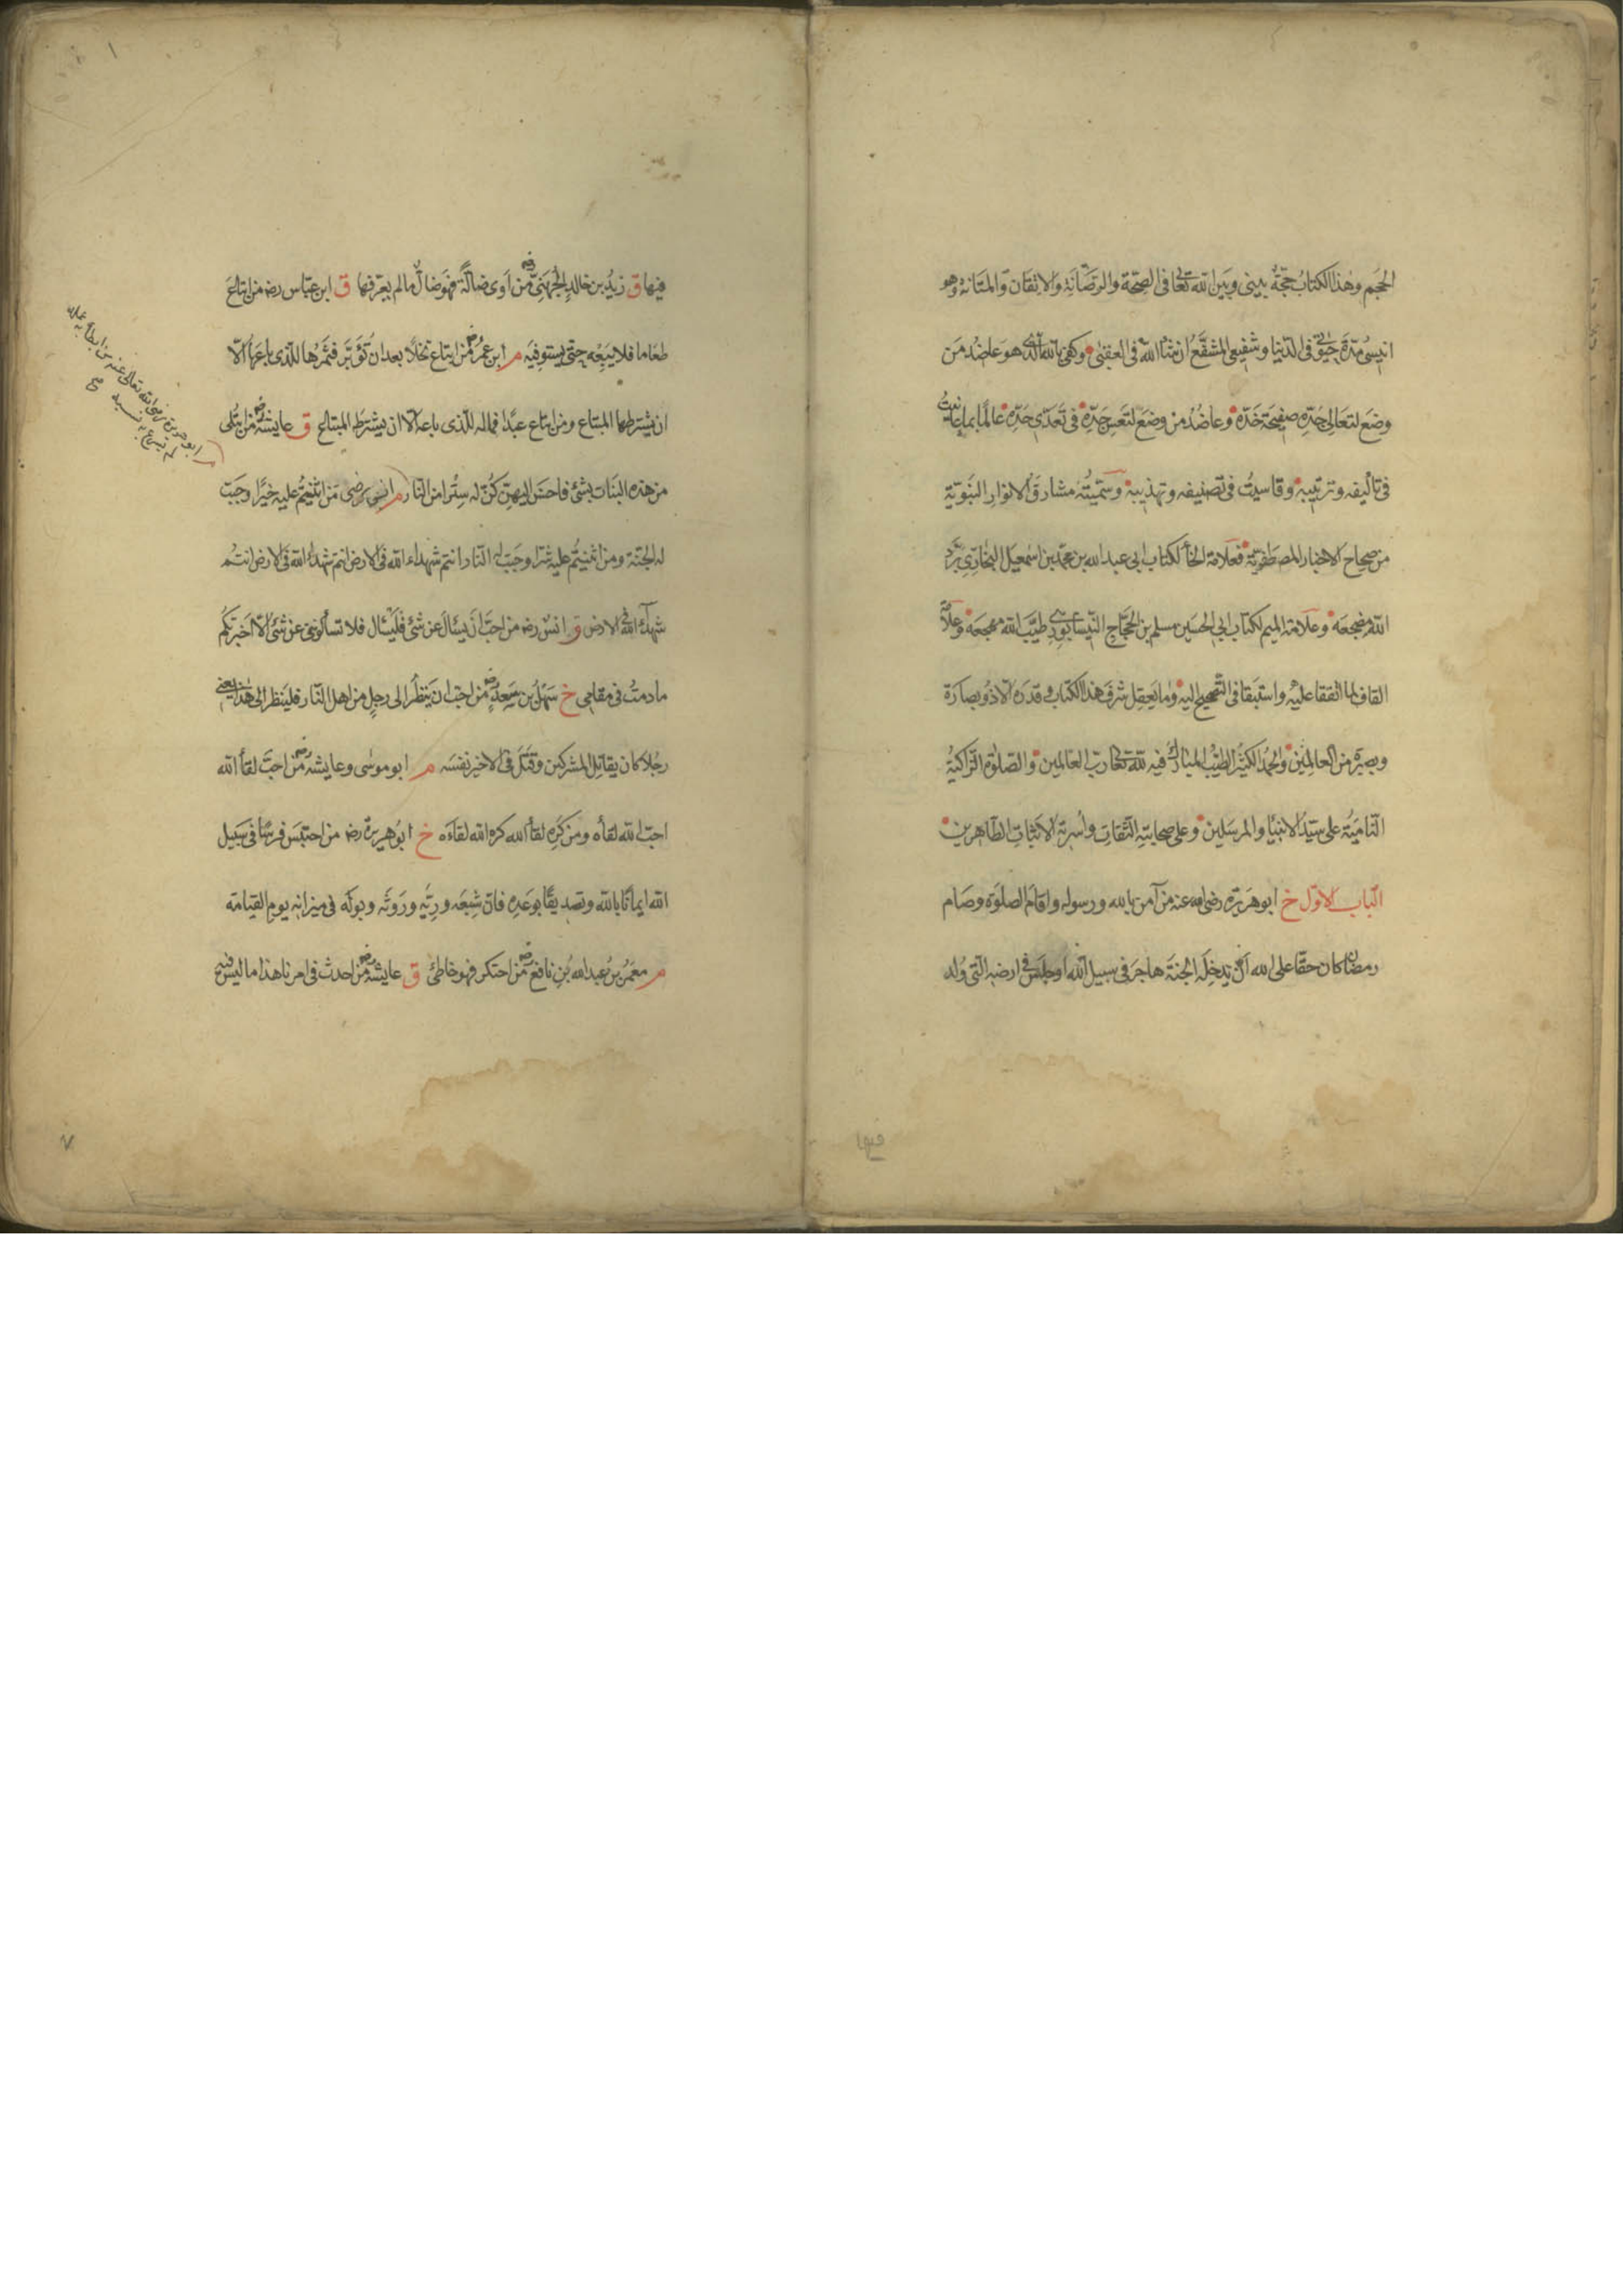 الحجم وهذا الكتاب حجّة بيني وبين الله تعالى في الصحّة والرّصانة والاتقان والمتانة وهو
انيسي مدّة حيوتي في الدّنيا وشفيعي المشفّع ان شاء الله في العقبى وكفى بالله الّذي هو عاضد من
وضع لتعالي جدّه صفيحة خدّه وعاضد من وضع لتعس جدّه في تعدّي حدّه عالمًا بما عانيت
في تأليفه وترتيبه وقاسيت في تصنيفه وتهذيبه وسمّيته مشارق الانوار النبويّة
من صحاح الاخبار المصطفويّة فعلامة الخاء لكتاب ابي عبد الله بن محمّد بن اسمعيل البخاري برّد
الله مضجعه وعلامة الميم لكتاب ابي الحسين مسلم بن الحجّاج النيسابوري طيّب الله مهجعه وعلامة
القاف لما اتفقا عليه واستبقا في التّصحيح اليه وما يعقل شرف هذا الكتاب وقدره الّا ذو بصارة
وبصيرة من العالمين والحمد الكثير الطيّب المبارك فيه لله تعالى ربّ العالمين والصلوة الزّاكية
النّامية على سيّد الانبيا والمرسلين وعلى صحابته الثّقات واسرته الاثبات الطّاهرين
الباب الاوّل خ ابو هريرة رضي الله عنه من آمن بالله ورسوله واقام الصلوة وصام
رمضان كان حقّا على الله ان يدخله الجنة هاجر في سبيل الله او جلس في ارضه الّتي ولد
فيها
فيها ق زيد بن خالد الجهنيّ رضه من آوى ضالّة فهو ضالّ مالم يعرّفها ق ابن عبّاس رضه من ابتاع
طعاما فلا يبعه حتّى يستوفيه م ابن عمر رضه من ابتاع نخلًا بعد ان تؤبّر فثمرها للّذي باعها الّا
ان يشترطها المبتاع ومن ابتاع عبدًا فماله للّذي باعه الّا ان يشترط المبتاع ق عايشة رضه من بُلي
من هذه البنات بشئ فاحسن اليهنّ كنّ له سترا من النار م انس رضى من اثنيتم عليه خيرًا وجبت
له الجنّة ومن اثنيتم عليه شرّا وجبت له النّار انتم شهداء الله في الارض انتم شهداء الله في الارض انتم
شهداء الله في الارض ق انس رضه من احبّ ان يسئال عن شئ فليسئال فلا تسألوني عن شئ الّا اخبرتكم
مادمت في مقامي خ سهل بن سعد رضه من احبّ ان ينظر الى رجل من اهل النّار فلينظر الى هذا يعني
رجلا كان يقاتل المشركين وقتل في الاخير نفسه م ابو موسى وعايشة رضه من احبّ لقأ الله
احبّ الله لقأه ومن كره لقأ الله كره الله لقاءه خ ابو هريرة رضه من احتبس فرسًا في سبيل
الله ايمانًا بالله وتصديقًا بوعده فانّ شبعه وريّه وروثه وبوله في ميزانه يوم القيامة
م معمر بن عبد الله بن نافع رضه من احتكر فهو خاطئ ق عايشة رضه من احدث في امرنا هذا ما ليس فيه
م ابو هريرة رضى الله تعالى عنه من ابطأ به عمله
لم يسرع به نسبه صح
٧